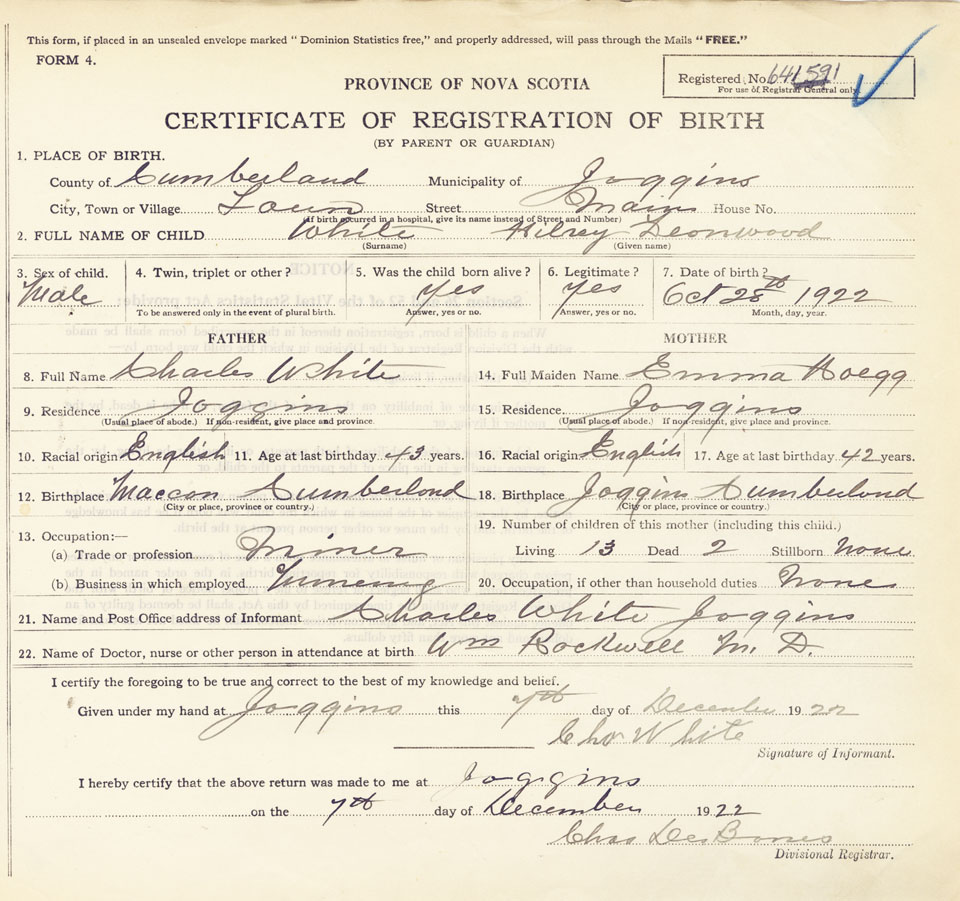 This form, if placed in an unsealed envelope marked "Dominion Statistics free," and properly addressed, will pass through the Mails "FREE."
FORM 4.
Registered No. 641591
For use of Registrar General only
PROVINCE OF NOVA SCOTIA
CERTIFICATE OF REGISTRATION OF BIRTH
(BY PARENT OR GUARDIAN)
1. PLACE OF BIRTH.
County of Cumberland Municipality of Joggins
City, Town or Village Town Street Main House No.
(If birth occurred in a hospital, give its name instead of Street and Number)
2. FULL NAME OF CHILD White Leonwood
(Surname) (Given name)
3. Sex of child. 4. Twin, triplet or other? 5. Was the child born alive? 6. Legitimate? 7. Date of birth?
Male Yes Yes Oct 28th 1922
To be answered only in the event of plural birth. Answer, yes or no. Answer, yes or no. Month, day, year.
FATHER MOTHER
8. Full Name Charles White 14. Full Maiden Name Emma Hoegg
9. Residence Joggins 15. Residence Joggins
(Usual place of abode.) If non-resident, give place and province. (Usual place of abode.) If non-resident, give place and province.
10. Racial origin English 11. Age at last birthday 43 years. 16. Racial origin English 17. Age at last birthday 42 years.
12. Birthplace Maccan Cumberland 18. Birthplace Joggins Cumberland
(City or place, province or country.) (City or place, province or country.)
19. Number of children of this mother (including this child.)
13. Occupation:—
(a) Trade or profession Miner Living 13 Dead 2 Stillborn None
(b) Business in which employed 20. Occupation, if other than household duties None
21. Name and Post Office address of Informant Charles White Joggins
22. Name of Doctor, nurse or other person in attendance at birth Wm Rockwell M. D.
I certify the foregoing to be true and correct to the best of my knowledge and belief.
Given under my hand at Joggins this 7th day of December 1922
Chas White
Signature of Informant.
I hereby certify that the above return was made to me at Joggins
on the 7th day of December 1922
Chas
Divisional Registrar.